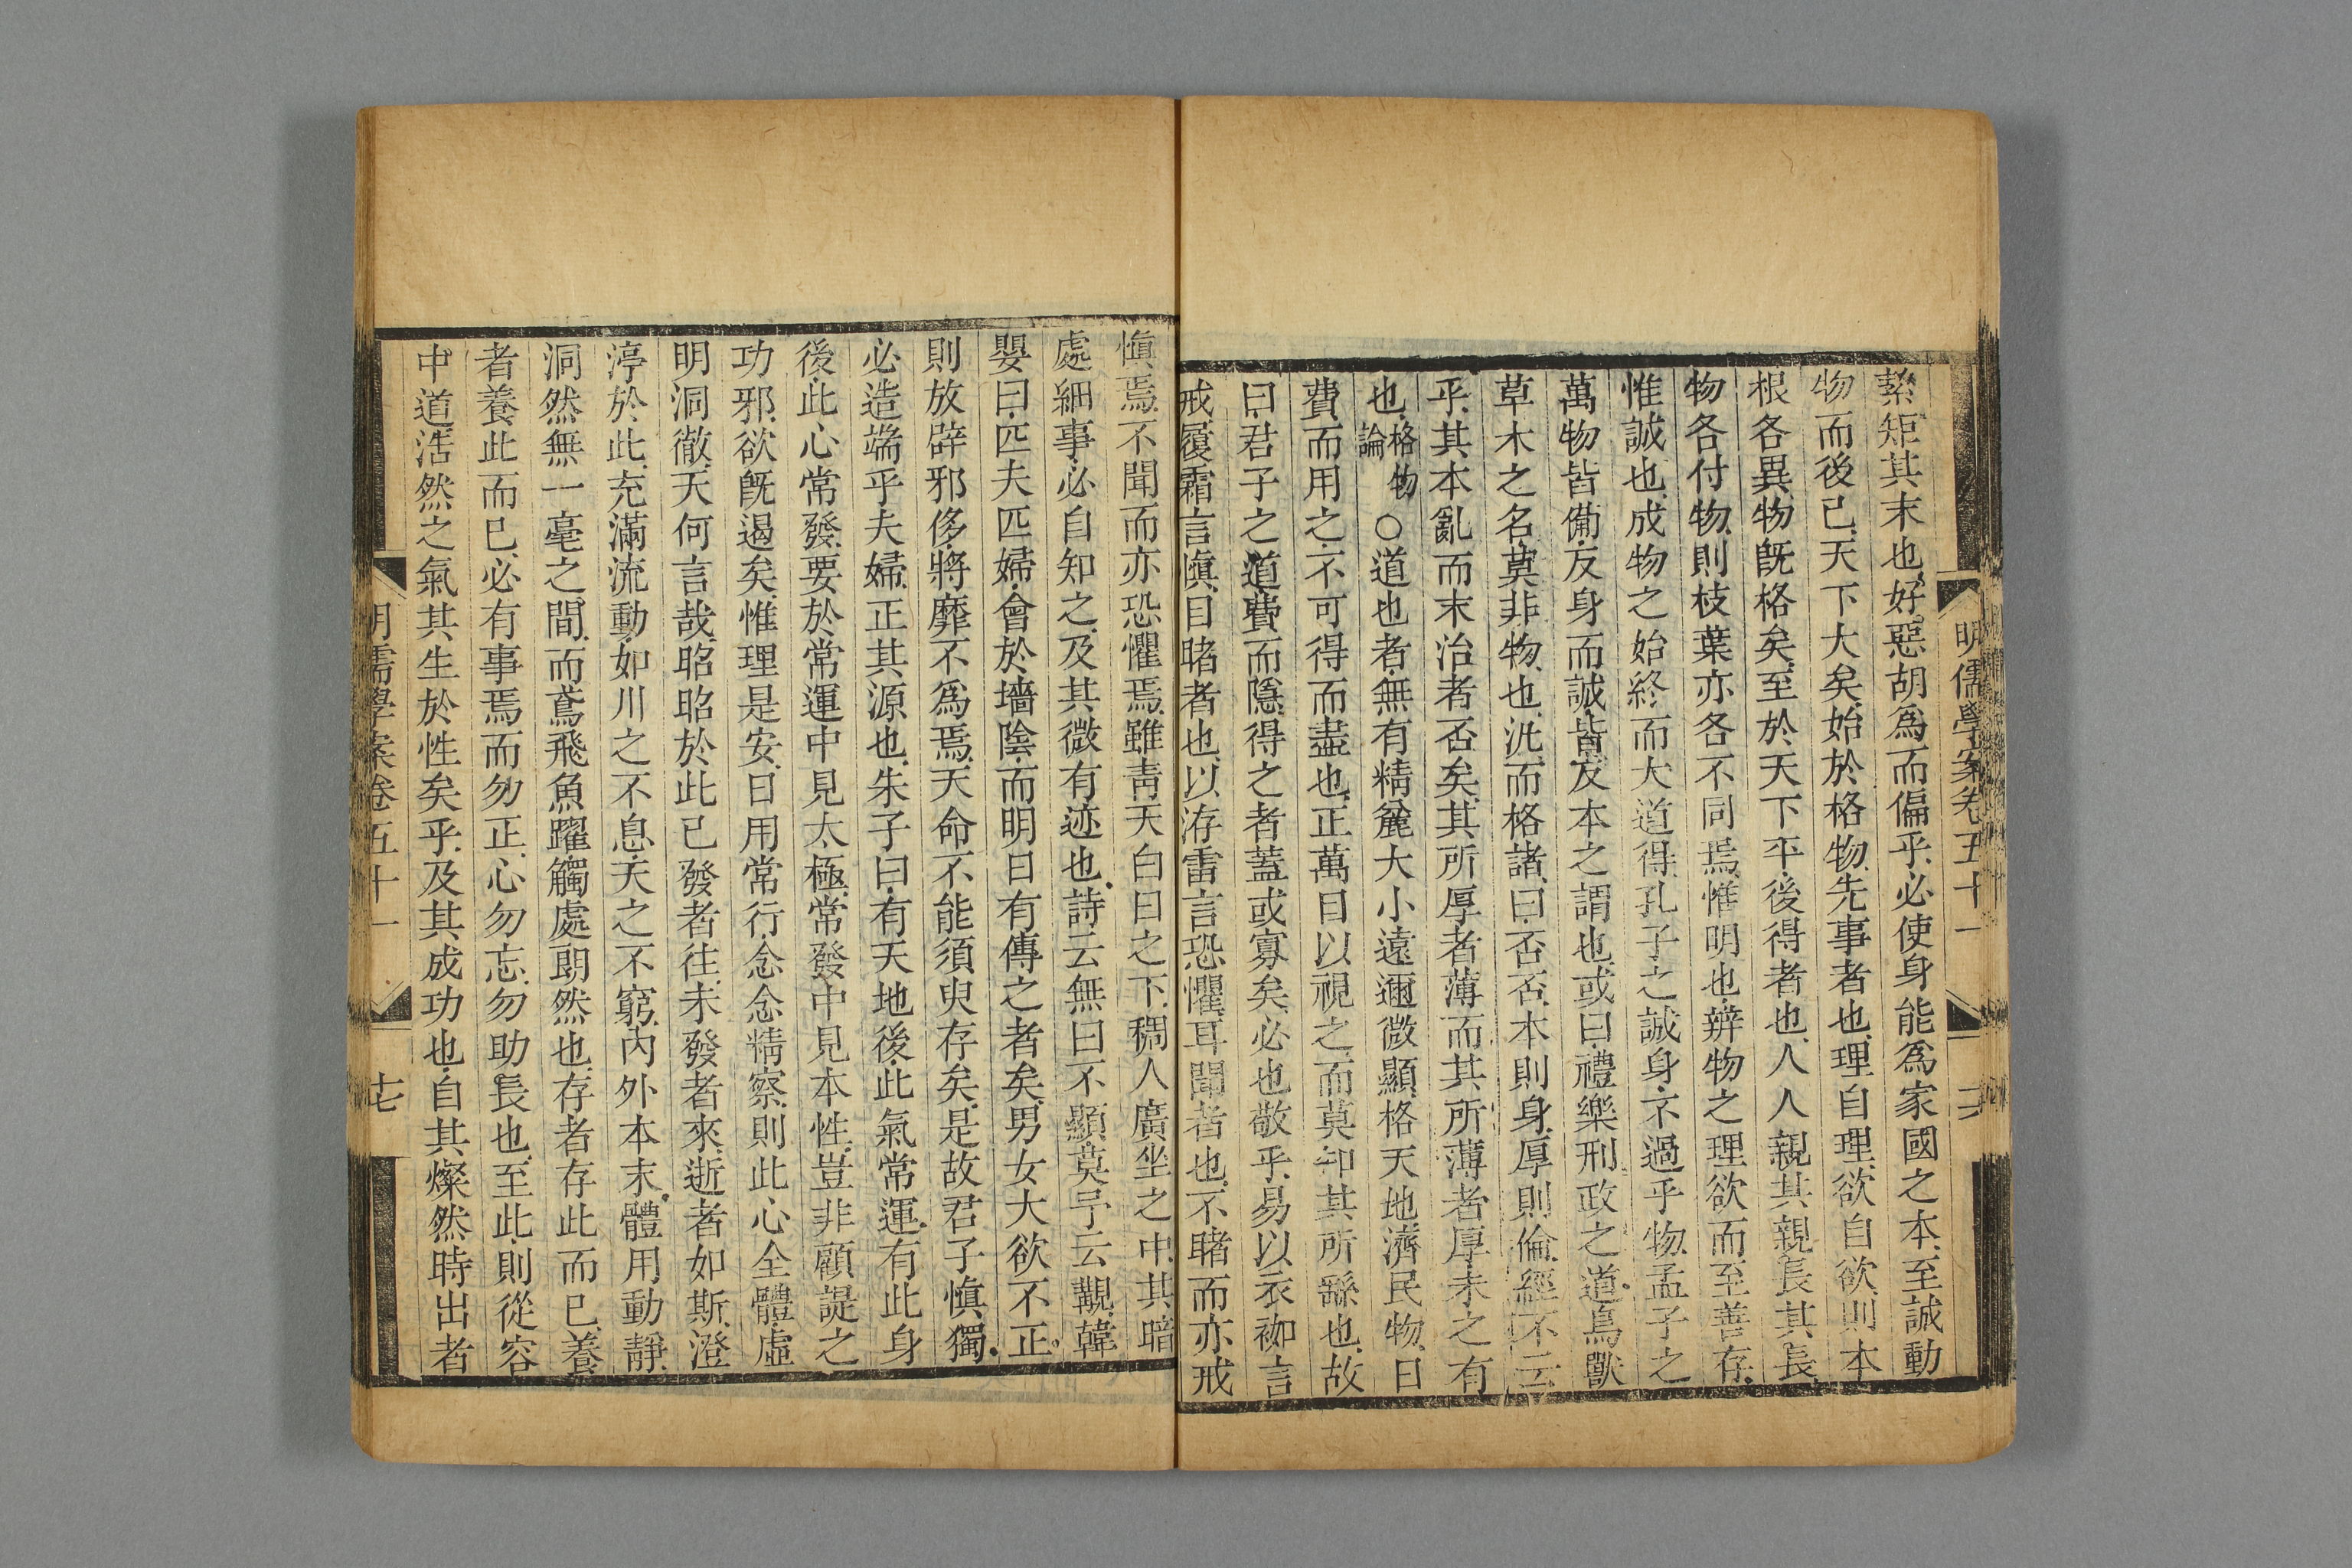 明儒學案卷五十一
絜矩其末也好惡胡爲而偏乎必使身能爲家國之本至誠動
物而後已天下大矣始於格物先事者也理自理欲自欲則本
根各異物旣格矣至於天下平後得者也人人親其親長其長
物各付物則枝葉亦各不同焉惟明也辨物之理欲而至善存
惟誠也成物之始終而大道得孔子之誠身不過乎物孟子之
萬物皆備反身而誠皆反本之謂也或曰禮樂刑政之道鳥獸
草木之名莫非物也泛而格諸曰否否本則身厚則倫經不云
乎其本亂而末治者否矣其所厚者薄而其所薄者厚未之有
也格物論○道也者無有精麤大小遠邇微顯格天地濟民物日
費而用之不可得而盡也正萬目以視之而莫知其所繇也故
曰君子之道費而隱得之者蓋或寡矣必也敬乎易以衣袽言
戒履霜言愼目睹者也以洊雷言恐懼耳聞者也不睹而亦戒
愼焉不聞而亦恐懼焉雖靑天白日之下稠人廣坐之中其暗
處細事必自知之及其微有迹也詩云無曰不顯莫予云觀韓
嬰曰匹夫匹婦會於墻陰而明日有傳之者矣男女大欲不正
則放辟邪侈將靡不爲焉天命不能須臾存矣是故君子愼獨
必造端乎夫婦正其源也朱子曰有天地後此氣常運有此身
後此心常發要於常運中見太極常發中見本性豈非顧諟之
功邪欲旣遏矣惟理是安日用常行念念精察則此心全體虛
明洞徹天何言哉昭昭於此已發者往未發者來逝者如斯澄
渟於此充滿流動如川之不息天之不窮內外本末體用動靜
洞然無一毫之間而鳶飛魚躍觸處朗然也存者存此而已養
者養此而已必有事焉而勿正心勿忘勿助長也至此則從容
中道浩然之氣其生於性矣乎及其成功也自其燦然時出者
明儒學案卷五十一
七